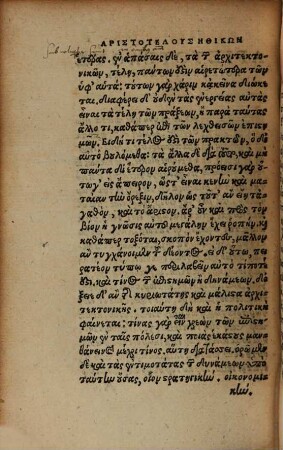 ΑΡΙΣΤΟΤΕΛΟΥΣ ΗΘΙΚΩΝ
ἕτερας. ἐν ἁπάσαις δὲ, τὰ τῶν ἀρχιτεκτο-
νικῶν, τέλη, πάντων δεῖν αἱρετώτερα τῶν
ὑφ' αὐτά: τούτων γὰρ χάριν κἀκεῖνα διώκε-
ται. διαφέρει δ' οὐδὲν τὰς ἐνεργείας αὐτὰς
εἶναι τὰ τέλη τῶν πράξεων, ἢ παρὰ ταύτας
ἄλλο τι, καθάπερ ἐπὶ τῶν λεχθεισῶν ἐπιστη-
μῶν. Εἰ δή τι τέλος ἐστὶ τῶν πρακτῶν, ὃ δι'
αὑτὸ βουλόμεθα: τὰ ἄλλα δὲ διὰ τοῦτο, καὶ μὴ
πάντα δι' ἕτερον αἱρούμεθα, πρόεισι γὰρ
οὕτω γ' εἰς ἄπειρον, ὥστ' εἶναι κενὴν καὶ μα-
ταίαν τὴν ὄρεξιν, δῆλον ὡς τοῦτ' ἂν εἴη τἀ-
γαθὸν, καὶ τὸ ἄριστον. ἆρ' οὖν καὶ πρὸς τὸν
βίον ἡ γνῶσις αὐτοῦ μεγάλην ἔχει ῥοπὴν, καὶ
καθάπερ τοξόται, σκοπὸν ἔχοντες, μᾶλλον
ἂν τυγχάνοιμεν τοῦ δέοντος. εἰ δ' οὕτω, πει-
ρατέον τύπῳ γε περιλαβεῖν αὐτὸ τί ποτέ
ἐστι. καὶ τίνος τῶν ἐπιστημῶν ἢ δυνάμεων. δό-
ξειε δ' ἂν τῆς κυριωτάτης καὶ μάλιστα ἀρχι-
τεκτονικῆς. τοιαύτη δὴ καὶ ἡ πολιτικὴ
φαίνεται: τίνας γὰρ εἶναι χρεὼν τῶν ἐπιστη-
μῶν ἐν ταῖς πόλεσι, καὶ ποίας ἑκάστους μαν-
θάνειν καὶ μέχρι τίνος. αὕτη διατάσσει. ὁρῶμεν
δὲ καὶ τὰς ἐντιμοτάτας τῶν δυνάμεων ὑπὸ
ταύτην οὔσας, οἷον στρατηγικὴν. οἰκονομι-
κὴν.